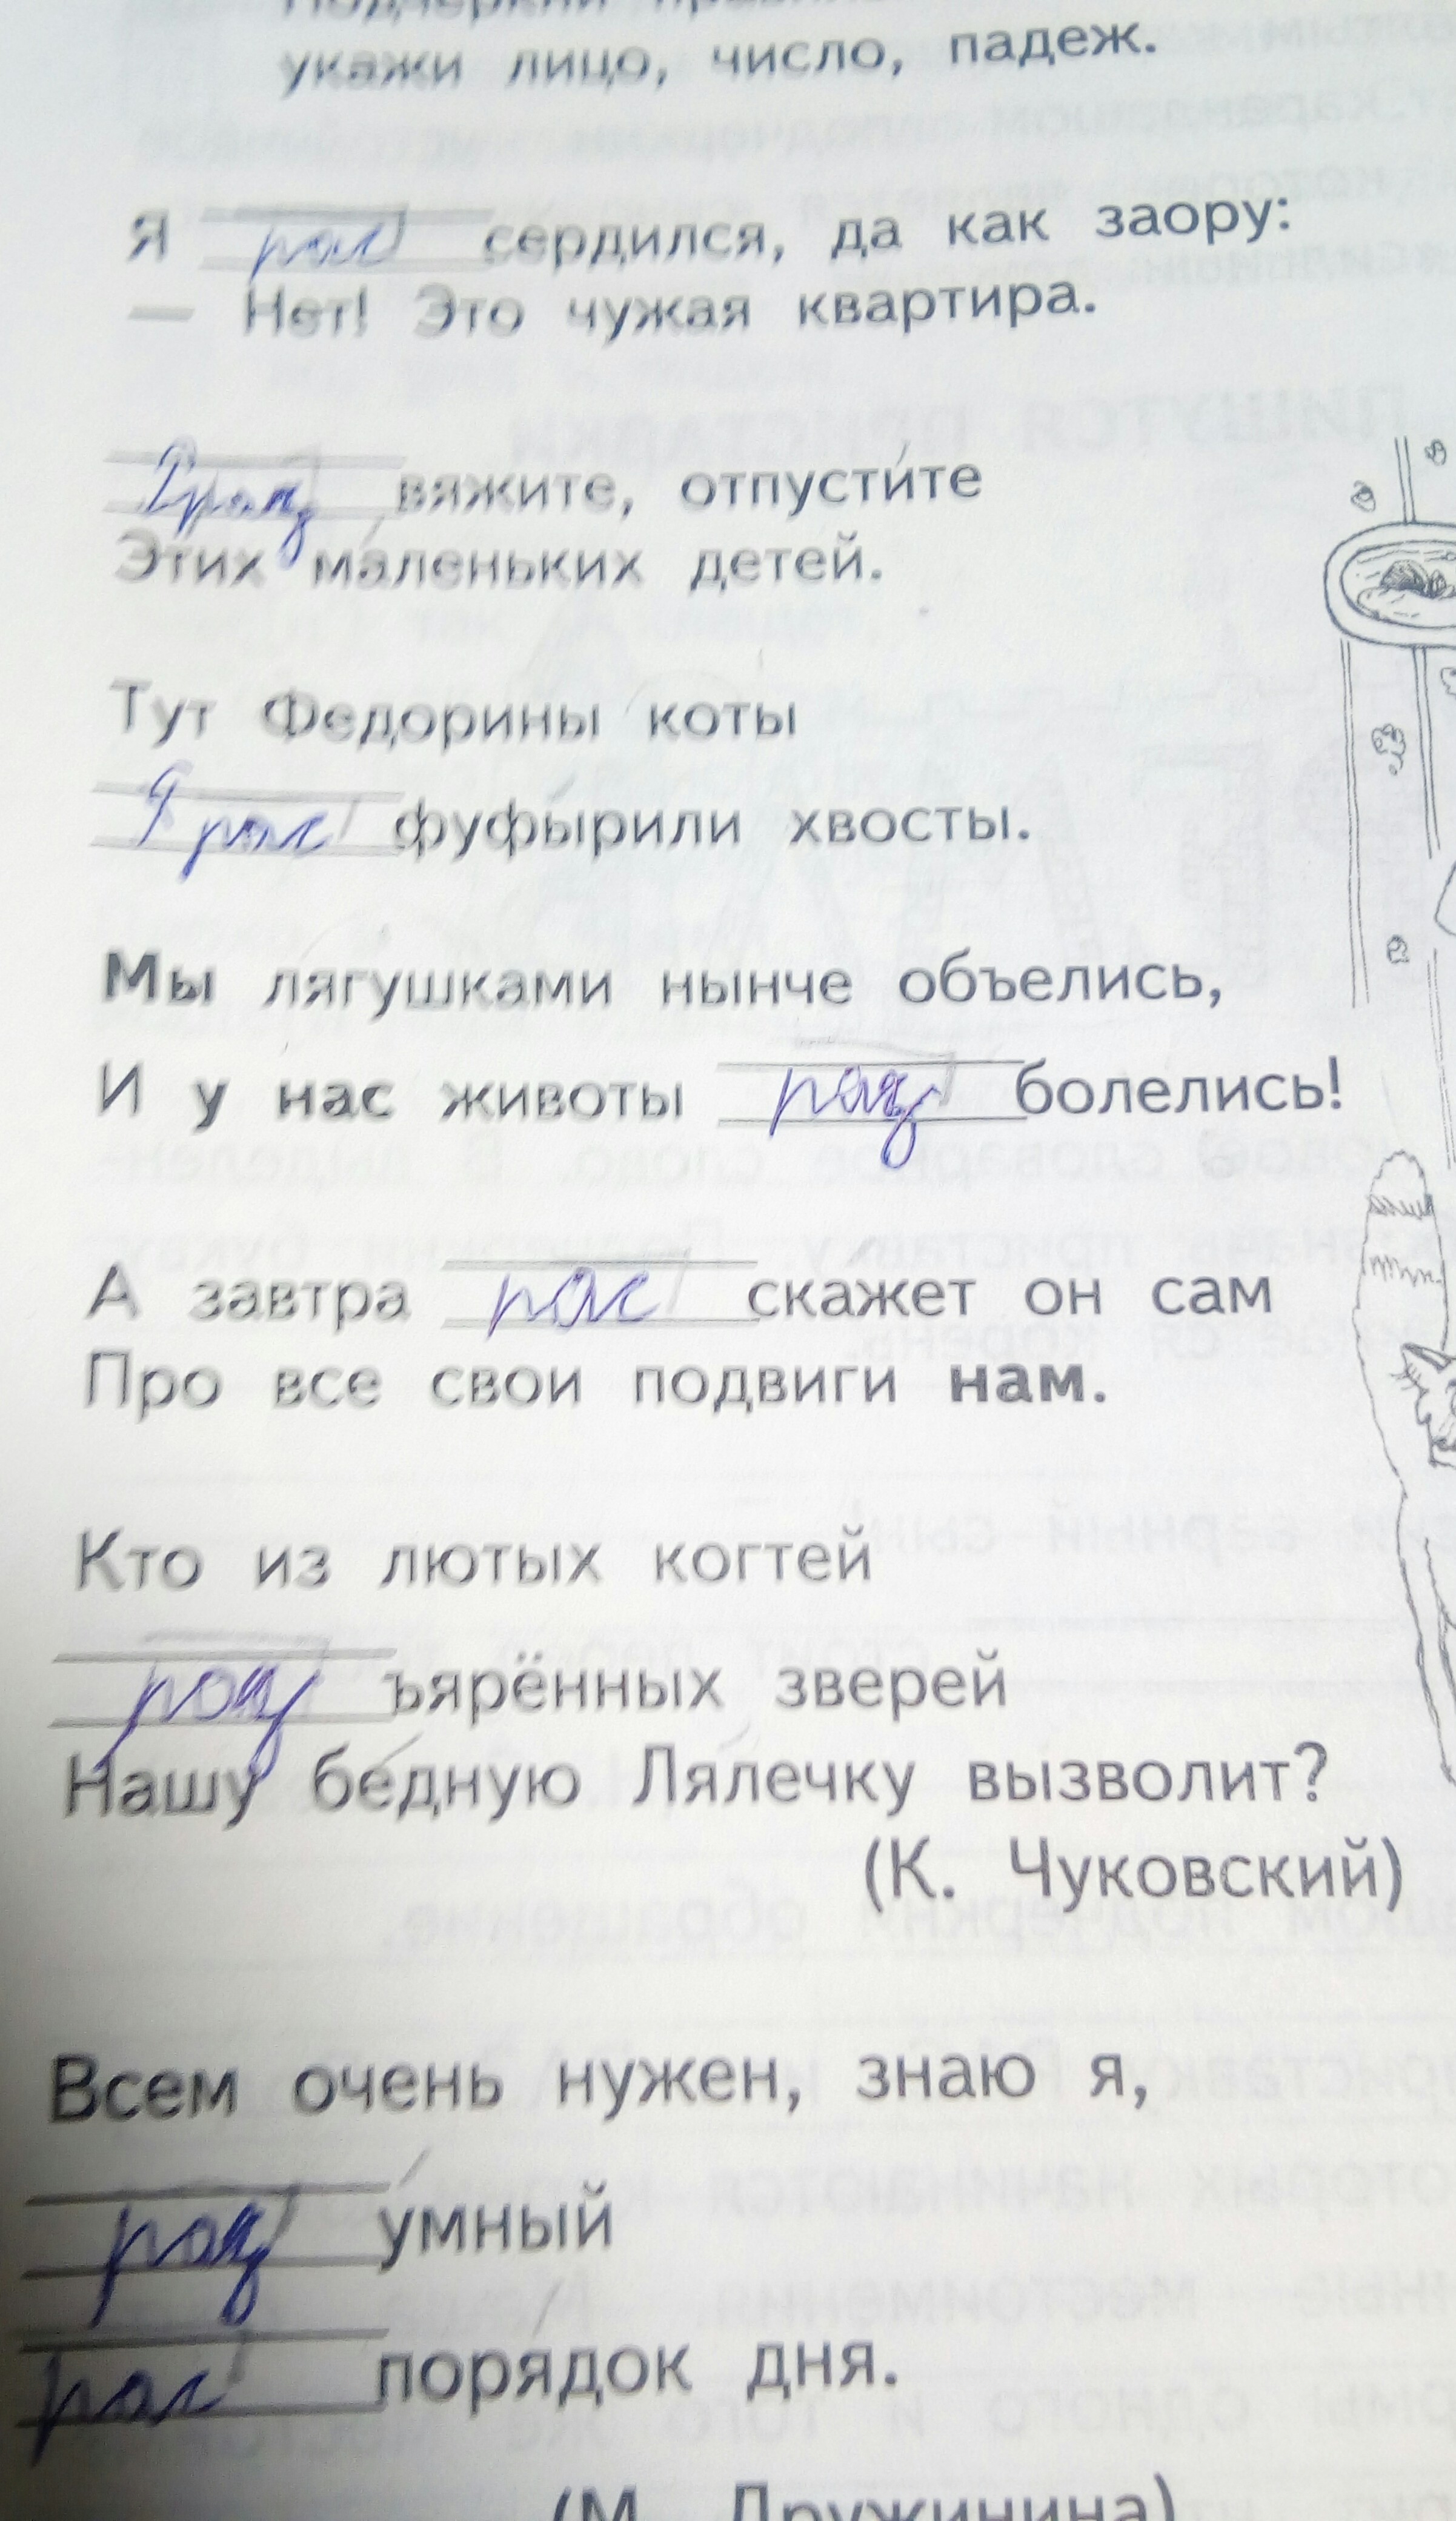 Подчеркни
укажи лицо, число, падеж.
Я рас сердился, да как заору:
— Нет! Это чужая квартира.
раз вяжите, отпусти́те
Этих ма́леньких детей.
Тут Федорины коты
рас фуфы́рили хвосты.
Мы лягушками нынче объелись,
И у нас животы раз болелись!
А завтра рас скажет он сам
Про все свои подвиги нам.
Кто из лютых когтей
раз ъярённых зверей
Нашу бе́дную Ля́лечку вызволит?
(К. Чуковский)
Всем очень нужен, знаю я,
раз у́мный
рас поря́док дня.
(М. Дружинина)